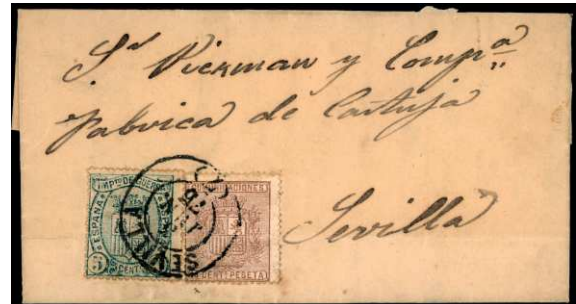 Sr Pierman y Compª
Fabrica de Cartuja
Sevilla
IMPTO DE GUERRA
ESPAÑA
5 CENT
COMUNICACIONES
CENT. PESETA
SEVILLA